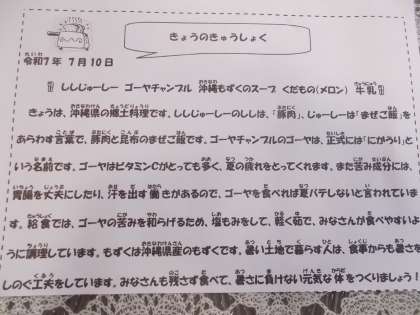 きょうのきゅうしょく
令和7年 7月10日
ししじゅーしー ゴーヤチャンプル 沖縄もずくのスープ くだもの(メロン) 牛乳
きょうは、沖縄県の郷土料理です。ししじゅーしーのししは、「豚肉」、じゅーしーは「まぜご飯」を
あらわす言葉で、豚肉と昆布のまぜご飯です。ゴーヤチャンプルのゴーヤは、正式には「にがうり」と
いう名前です。ゴーヤはビタミンCがとっても多く、夏の疲れをとってくれます。また苦み成分には、
胃腸を丈夫にしたり、汗を出す働きがあるので、ゴーヤを食べれば夏バテしないと言われていま
す。給食では、ゴーヤの苦みを和らげるため、塩もみをして、軽く茹で、みなさんが食べやすいよ
うに調理しています。もずくは沖縄県産のもずくです。暑い土地で暮らす人は、食事からも暑さを
しのぐ工夫をしています。みなさんも残さず食べて、暑さに負けない元気な体をつくりましょう!